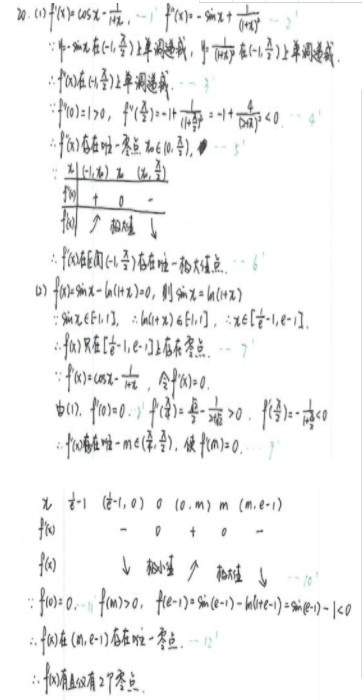 20. (1) f'(x)=cosx-1/(1+x), --1' f''(x)=-sinx+1/(1+x)² --2'
∵y=-sinx在(-1,π/2)上单调递减, y=1/(1+x)²在(-1,π/2)上单调递减,
∴f''(x)在(-1,π/2)上单调递减. --3'
∵f''(0)=1>0, f''(π/2)=-1+1/(1+π/2)²=-1+4/(2+π)²<0. --4'
∴f''(x)存在唯一零点x₀∈(0,π/2), --5'
∵
x (-1,x₀) x₀ (x₀,π/2)
f''(x) + 0 -
f'(x) ↗ 极大值 ↓
∴f'(x)在区间(-1,π/2)存在唯一极大值点. --6'
(2) f(x)=sinx-ln(1+x)=0, 则sinx=ln(1+x)
∵sinx∈[-1,1], ∴ln(1+x)∈[-1,1], ∴x∈[1/e-1,e-1].
∴f(x)只在[1/e-1,e-1]上存在零点. --7'
∵f'(x)=cosx-1/(1+x), 令f'(x)=0.
由(1), f'(0)=0, f'(π/4)=√2/2-1/(1+π/4)>0, f'(π/2)=-1/(1+π/2)<0
∴f'(x)存在唯一m∈(π/4,π/2), 使f'(m)=0. --9'
x 1/e-1 (1/e-1,0) 0 (0,m) m (m,e-1)
f'(x) - 0 + 0 -
f(x) ↓ 极小值 ↗ 极大值 ↓ --10'
∵f(0)=0, --11' f(m)>0, f(e-1)=sin(e-1)-ln(1+e-1)=sin(e-1)-1<0
∴f(x)在(m,e-1)存在唯一零点 --12'
∴f(x)有且仅有2个零点.